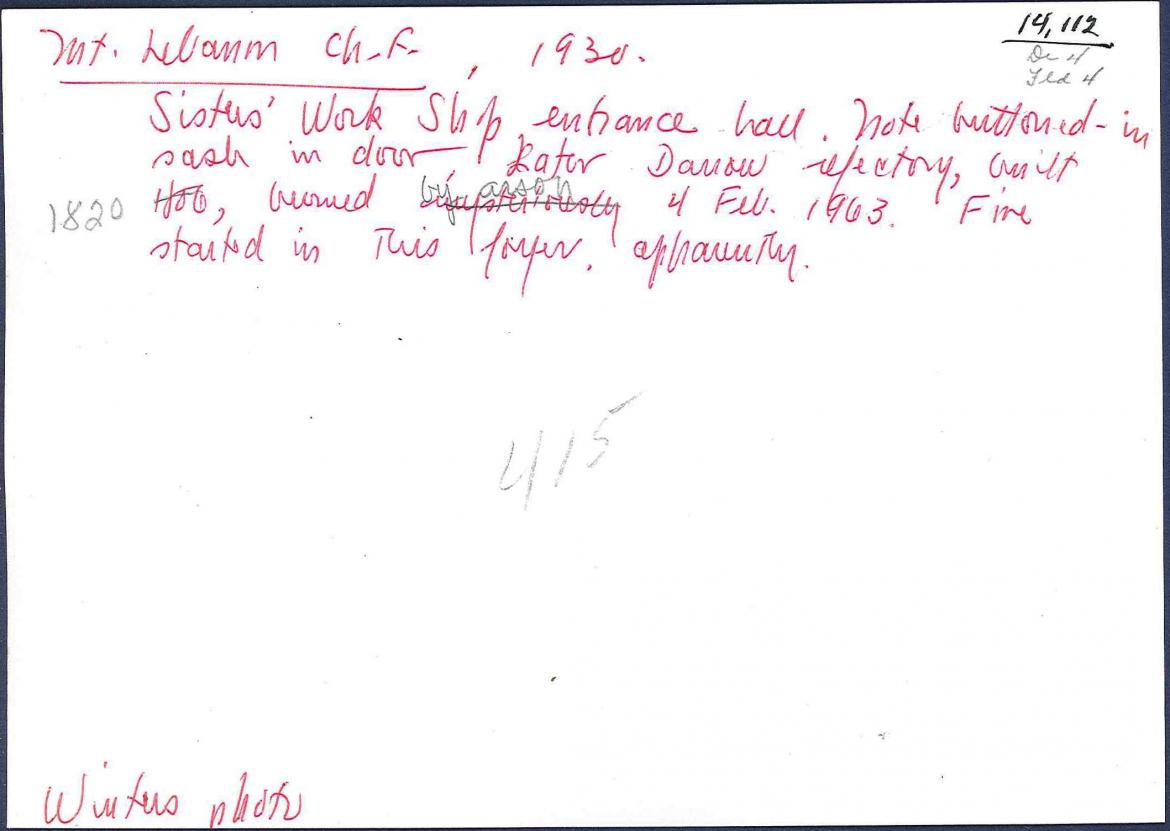 Mt. Lebanon Ch. F., 1930.
14,112
De 4
Fld 4
Sisters' Work Shop entrance hall. Note buttoned-in
sash in door Later Darrow refectory, built
1820, burned by arson mysteriously 4 Feb. 1963. Fire
started in this foyer, apparently.
415
Winters photo